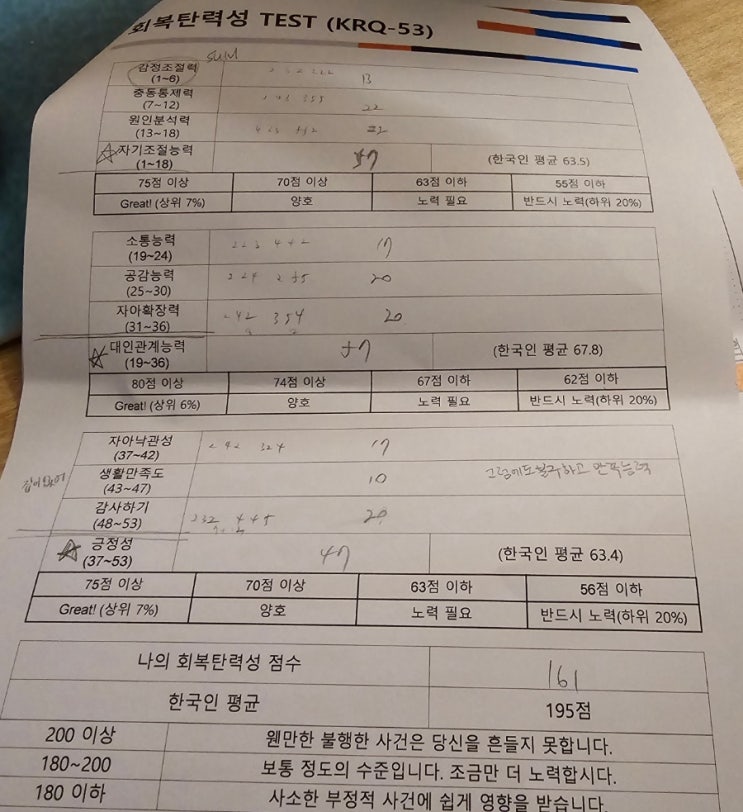 회복탄력성 TEST (KRQ-53)
sum
감정조절력 13
(1~6)
충동통제력 22
(7~12)
원인분석력 22
(13~18)
자기조절능력 57 (한국인 평균 63.5)
(1~18)
75점 이상 70점 이상 63점 이하 55점 이하
Great! (상위 7%) 양호 노력 필요 반드시 노력(하위 20%)
소통능력 2 2 3 4 4 2 17
(19~24)
공감능력 20
(25~30)
자아확장력 2 4 2 3 5 4 20
(31~36)
대인관계능력 57 (한국인 평균 67.8)
(19~36)
80점 이상 74점 이상 67점 이하 62점 이하
Great! (상위 6%) 양호 노력 필요 반드시 노력(하위 20%)
자아낙관성 2 4 2 3 2 4 17
(37~42)
생활만족도 10 그럼에도불구하고 만족능력
(43~47)
감사하기 2 3 2 4 4 5 20
(48~53)
긍정성 47 (한국인 평균 63.4)
(37~53)
75점 이상 70점 이상 63점 이하 56점 이하
Great! (상위 7%) 양호 노력 필요 반드시 노력(하위 20%)
나의 회복탄력성 점수 161
한국인 평균 195점
200 이상 웬만한 불행한 사건은 당신을 흔들지 못합니다.
180~200 보통 정도의 수준입니다. 조금만 더 노력합시다.
180 이하 사소한 부정적 사건에 쉽게 영향을 받습니다.